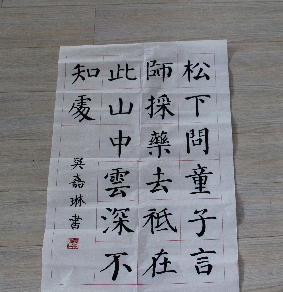 松下問童子言
師採藥去祗在
此山中雲深不
知處
吳嘉琳書